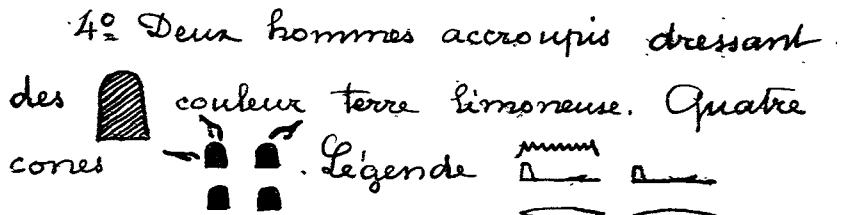 4º Deux hommes accroupis dressant
des couleur terre limoneuse. Quatre
cones . Légende